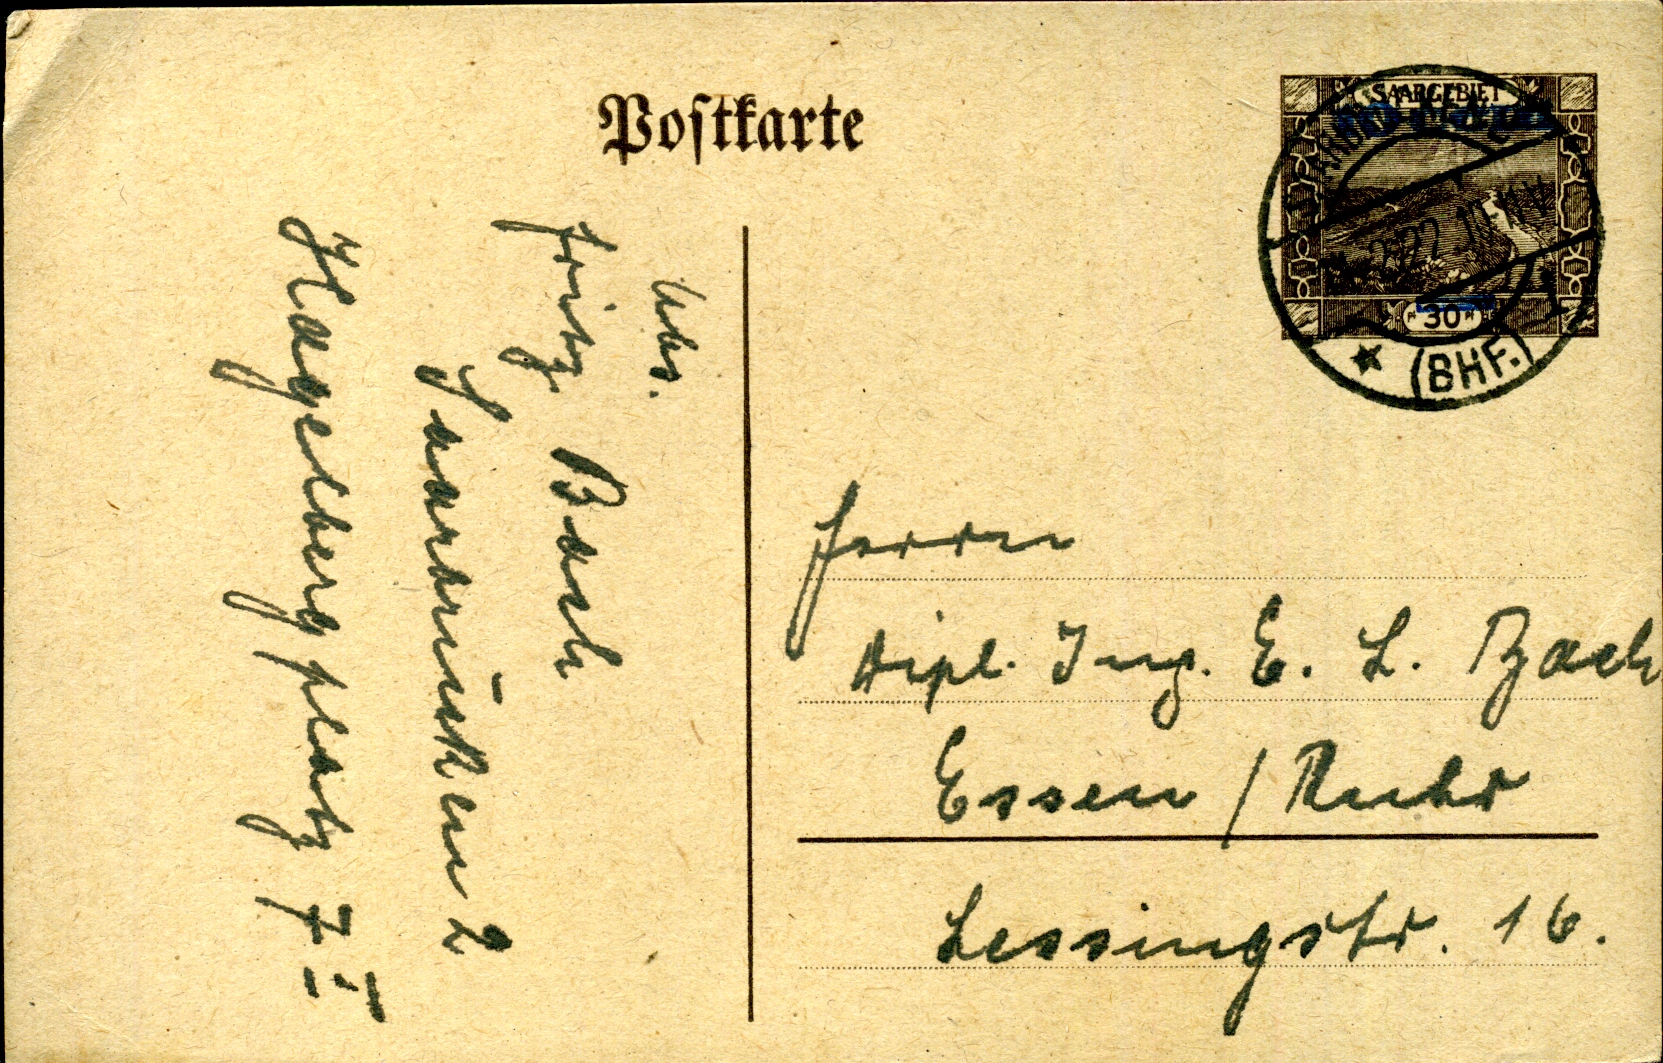 Postkarte
SAARGEBIET
30
(BHF.)
Abs.
Fritz Bach
Saarbrücken 2
Hagelburgplatz 7 I
Herrn
Dipl. Ing. E. L. Bach
Essen / Ruhr
Lessingstr. 16.